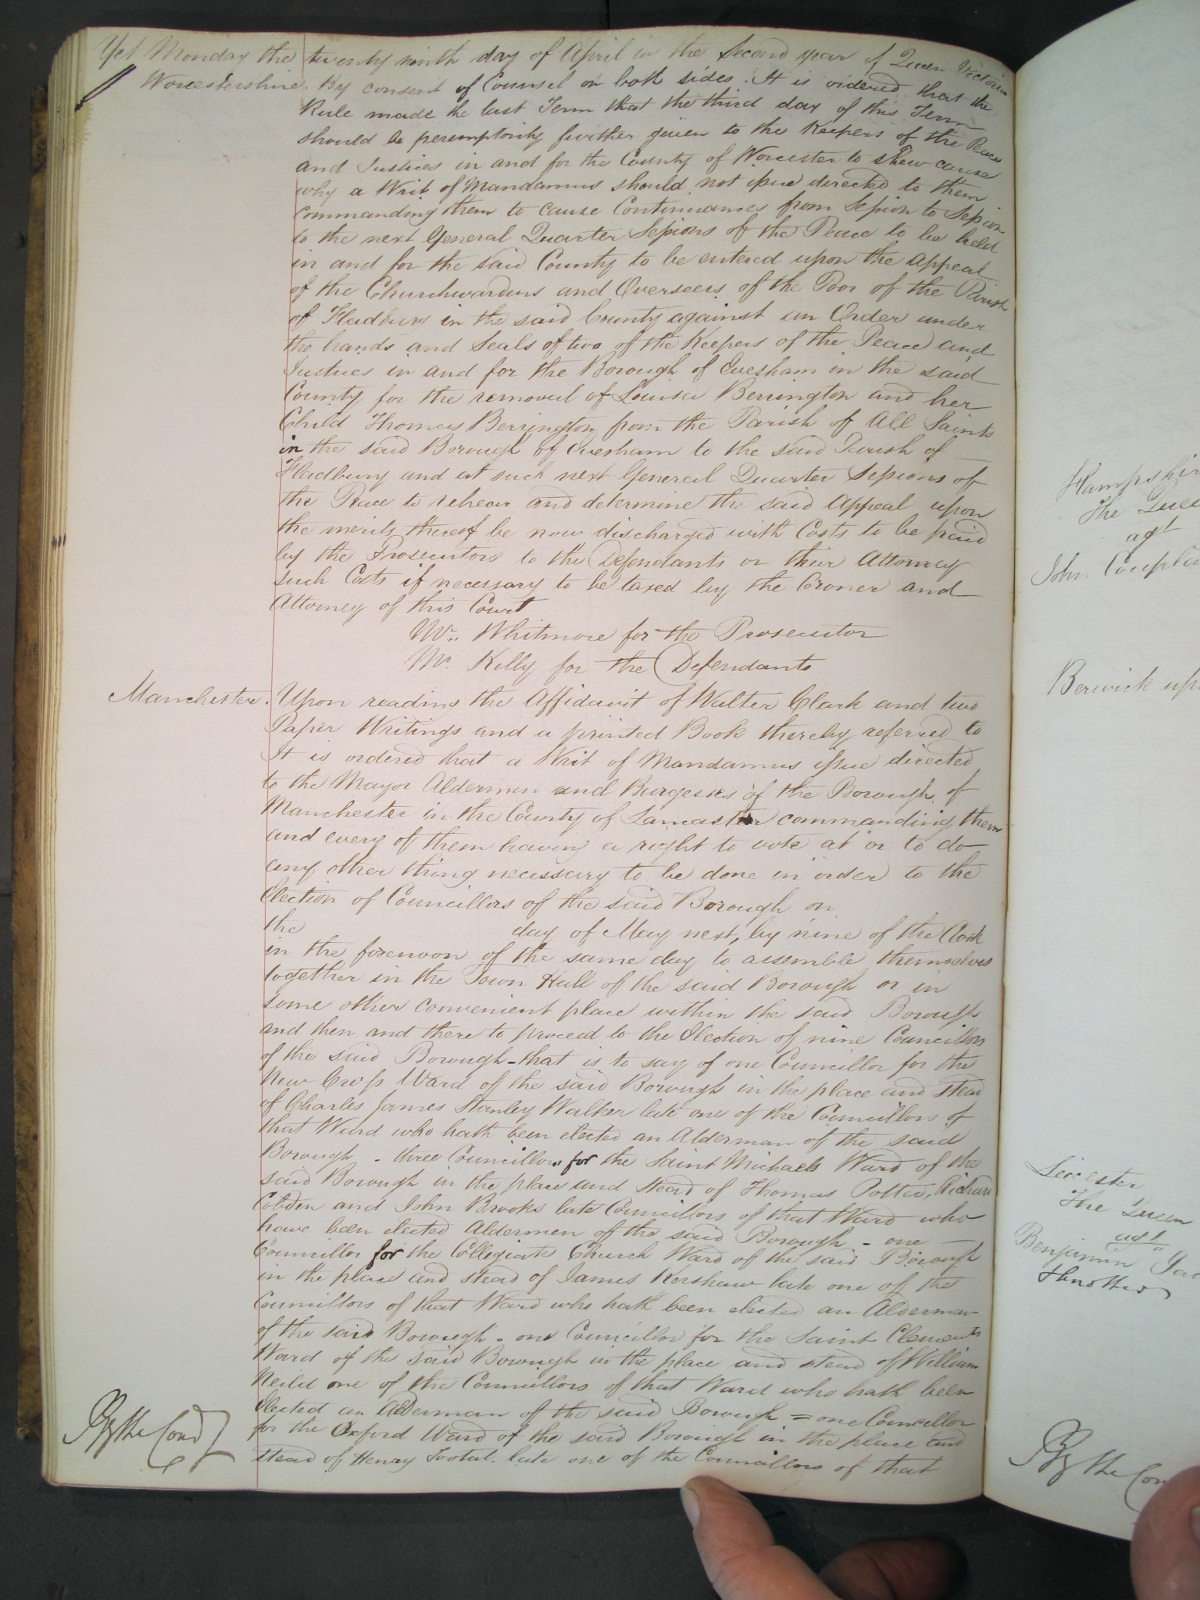 Yet Monday the twenty ninth day of April in the Second year of Queen Victoria
Worcestershire. By consent of Counsel on both sides. It is ordered that the
Rule made the last Term that the third day of this Term
should be peremptorily further given to the Keepers of the Peace
and Justices in and for the County of Worcester to shew cause
why a Writ of Mandamus should not issue directed to them
commanding them to cause Continuances from Session to Session
to the next General Quarter Sessions of the Peace to be held
in and for the said County to be entered upon the Appeal
of the Churchwardens and Overseers of the Poor of the Parish
of Fladbury in the said County against an Order under
the hands and Seals of two of the Keepers of the Peace and
Justices in and for the Borough of Evesham in the said
County for the removal of Louisa Berrington and her
Child Thomas Berrington from the Parish of All Saints
in the said Borough of Evesham to the said Parish of
Fladbury and at such next General Quarter Sessions of
the Peace to rehear and determine the said Appeal upon
the merits thereof be now discharged with Costs to be paid
by the Prosecutors to the Defendants or their Attorney
such Costs if necessary to be taxed by the Coroner and
Attorney of this Court
Mr. Whitmore for the Prosecutor
Mr. Kelly for the Defendants
Manchester. Upon reading the Affidavit of Walter Clark and two
Paper Writings and a printed Book thereby referred to
It is ordered that a Writ of Mandamus issue directed
to the Mayor Aldermen and Burgesses of the Borough of
Manchester in the County of Lancaster commanding them
and every of them having a right to vote at or to do
any other thing necessary to be done in order to the
Election of Councillors of the said Borough on
the day of May next, by nine of the Clock
in the forenoon of the same day to assemble themselves
together in the Town Hall of the said Borough or in
some other convenient place within the said Borough
and then and there to proceed to the Election of nine Councillors
of the said Borough - that is to say of one Councillor for the
New Cross Ward of the said Borough in the place and stead
of Charles James Stanley Walker late one of the Councillors of
that Ward who hath been elected an Alderman of the said
Borough - three Councillors for the Saint Michaels Ward of the
said Borough in the place and stead of Thomas Potter, Richard
Cobden and John Brooks late Councillors of that Ward who
have been elected Aldermen of the said Borough - one
Councillor for the Collegiate Church Ward of the said Borough
in the place and stead of James Kershaw late one of the
Councillors of that Ward who hath been elected an Alderman
of the said Borough - one Councillor for the Saint Clements
Ward of the said Borough in the place and stead of William
Neild one of the Councillors of that Ward who hath been
Elected an Alderman of the said Borough = one Councillor
for the Oxford Ward of the said Borough in the place and
stead of Henry Tootal late one of the Councillors of that
By the Court
Hampshire
The Queen
agt
John
Berwick upon
Leicester
The Queen
agt
Benjamin
& another
By the Court